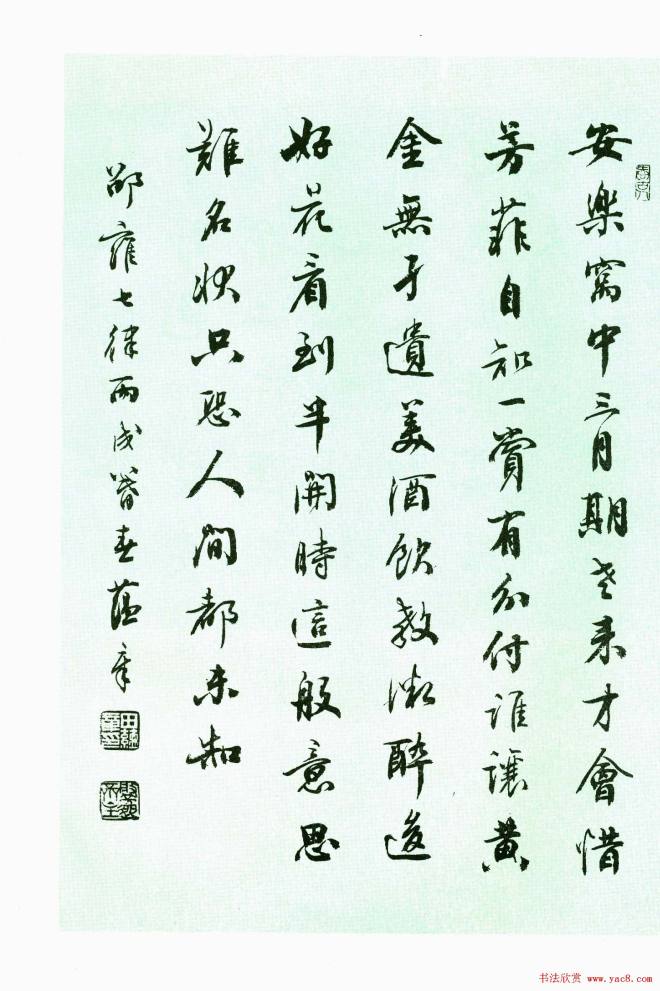 安樂窩中三月期老来才會惜
芳菲自知一賞有分付誰讓黃
金無孑遺美酒飲教微醉後
好花看到半開時這般意思
難名狀只恐人間都未知
邵雍七律丙戌暮春蘊章
田蘊章印
书法欣赏 www.yac8.com